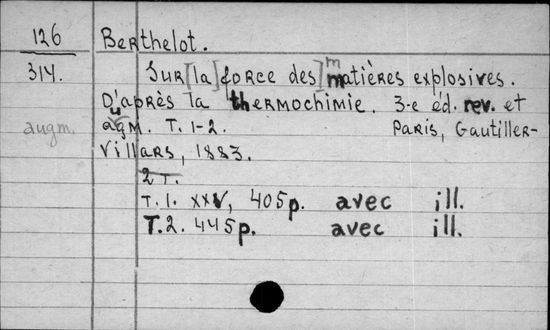 126 Berthelot.
314. Sur [la] force des] matières explosives.
D'après la thermochimie. 3-e éd. rev. et
augm. augm. T. 1-2. Paris, Gautiller-
Villars, 1883.
2 T.
T. 1. XXV, 405 p. avec ill.
T. 2. 445 p. avec ill.